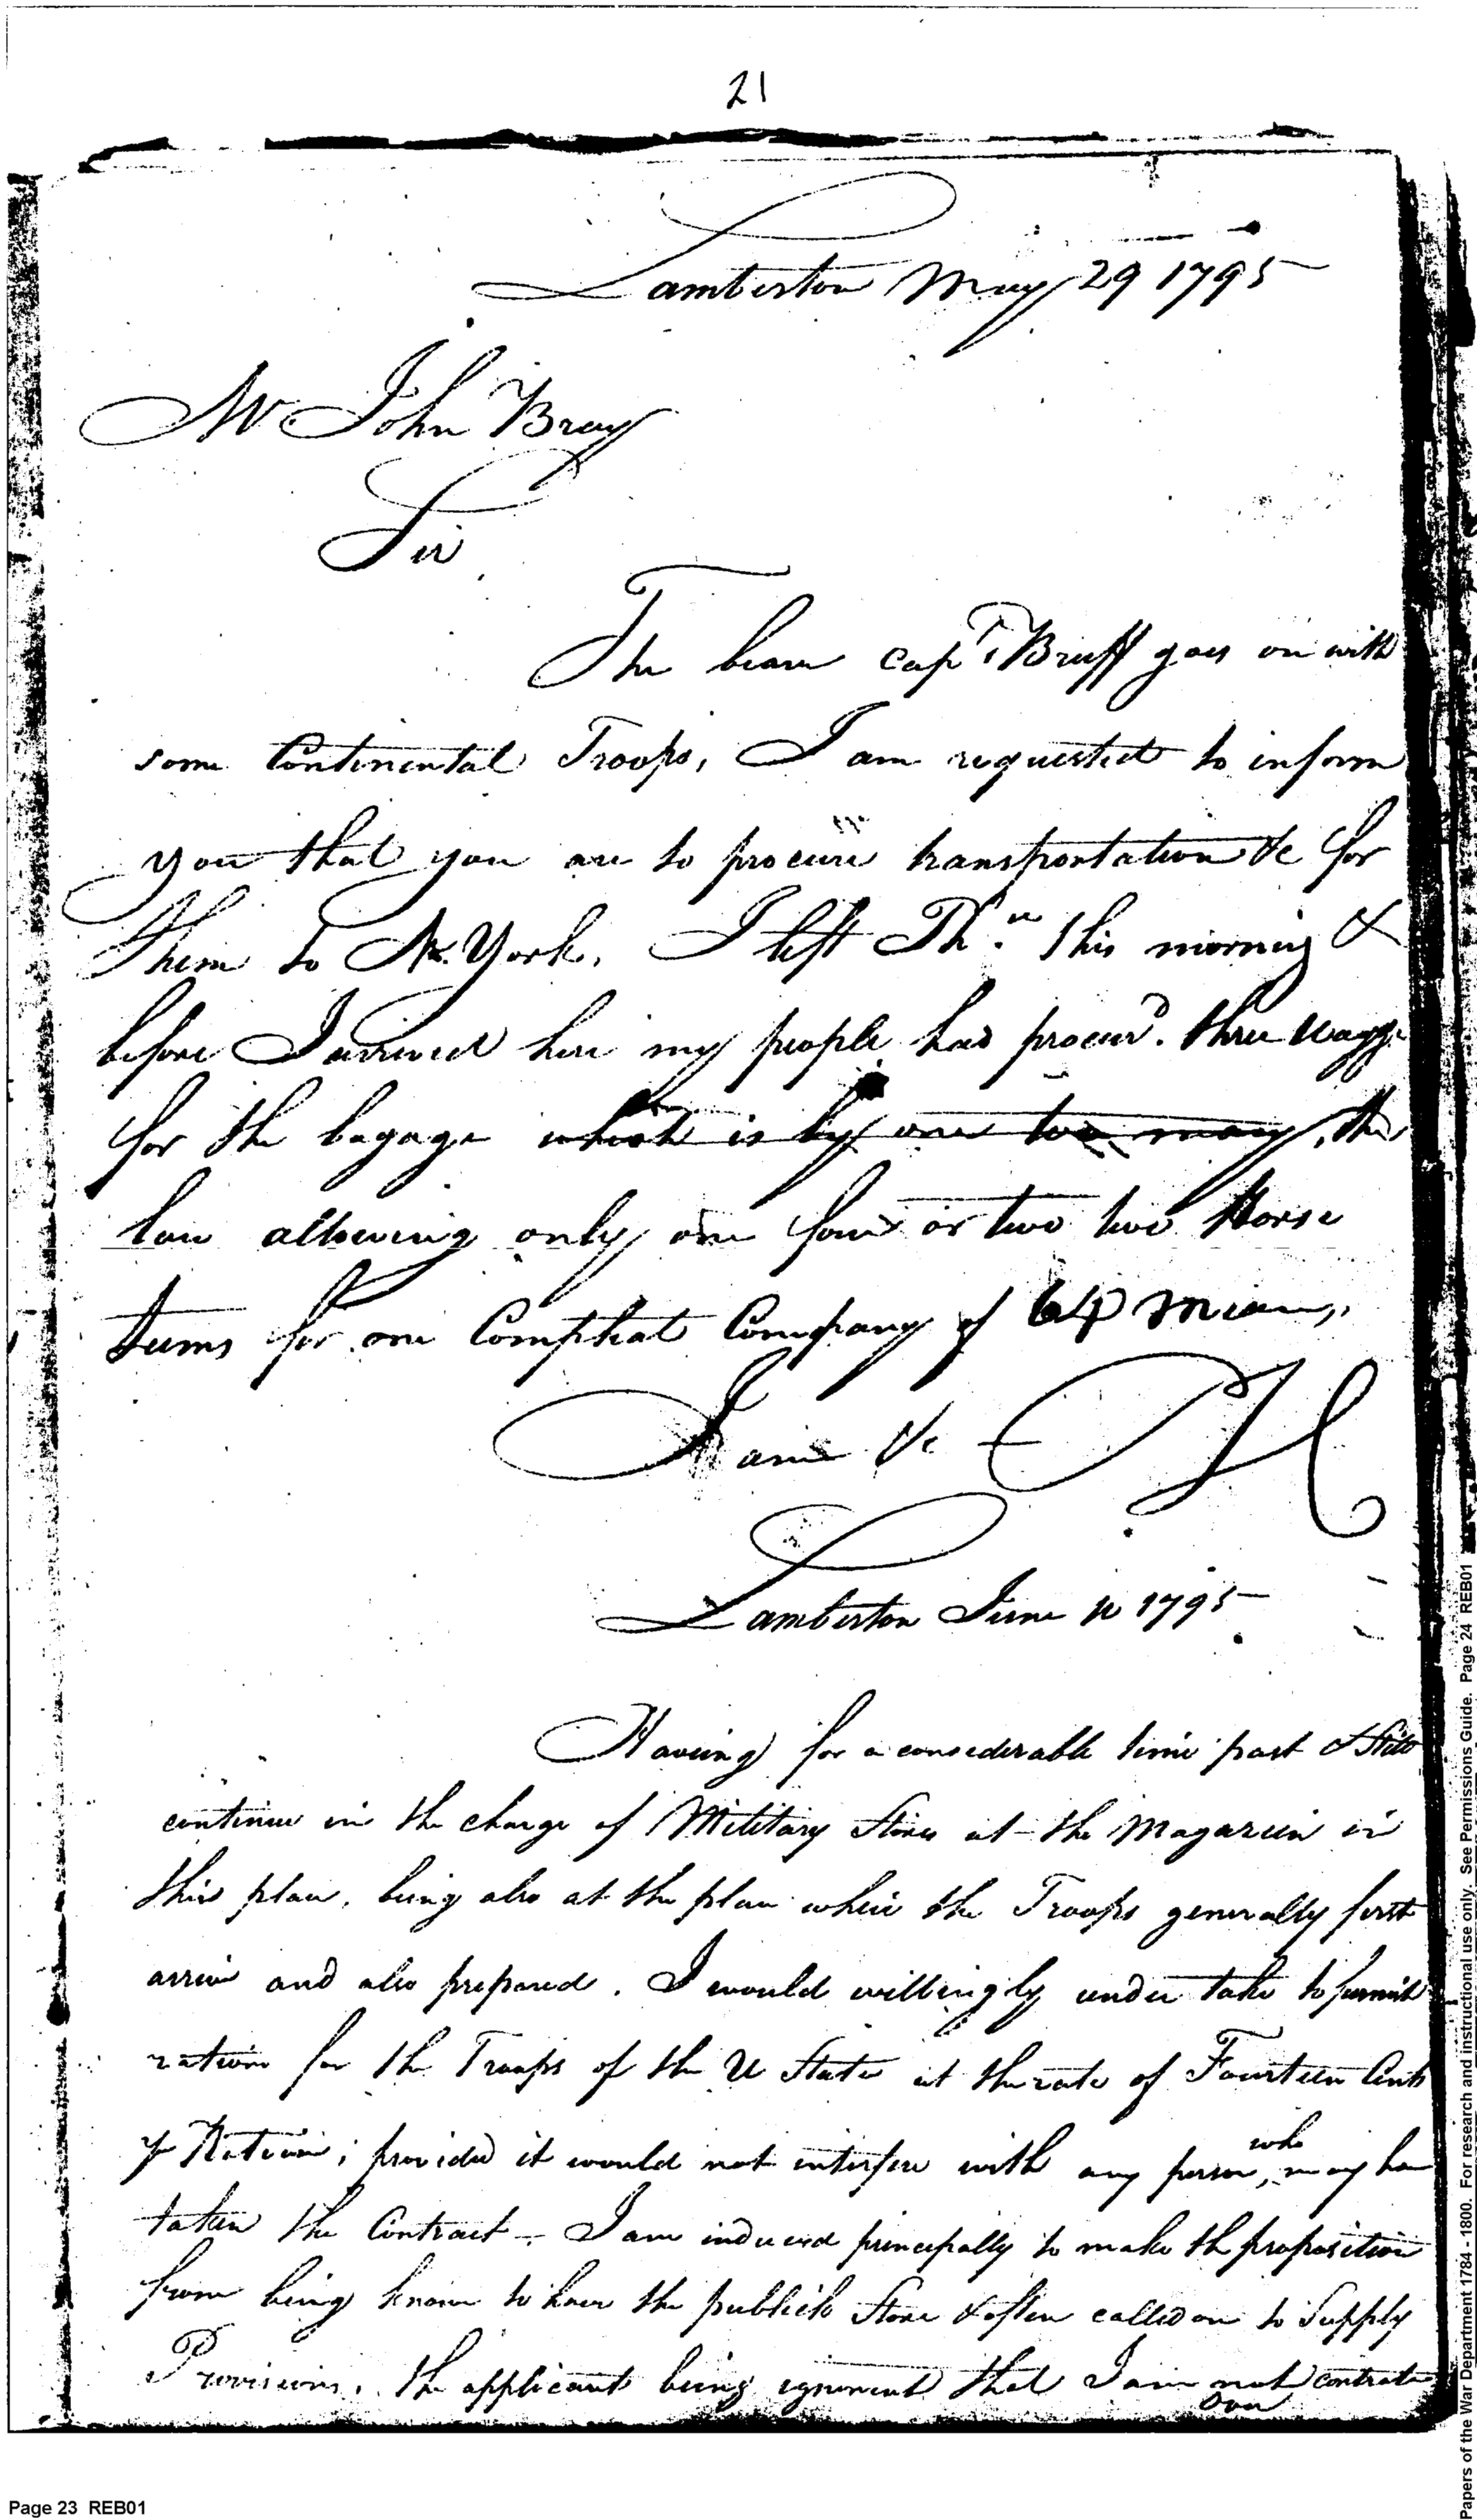 21
Lamberton May 29 1795
Mr John Bray
Sir
The bearer Capt. Bruff goes on with
some Continental Troops, I am requested to inform
you that you are to procure transportation &c for
them to N. York. I left Pha. this morning &
before I arrived here my people had procurd. three waggs
for the bagage which is by one too many, the
law allowing only one four or two two Horse
teems for one Compleat Company of 64 men,
I am &c
Lamberton June 10 1795
Having for a considerable time past & still
continue in the charge of Military Stores at the Magazein in
this place, being also at the place where the Troops generally first
arrive and also prepared. I would willingly under take to furnish
rations for the Troops of the U States at the rate of Fourteen Cents
⅌ Ration; provided it would not interfere with any person, who may have
taken the Contract - I am induced principally to make th proposition
from being known to have the publick Store & often called on to Supply
Provisions. The applicant being ignorant that I am not contractor
Over
Page 23 REB01
Papers of the War Department 1784 - 1800. For research and instructional use only. See Permissions Guide. Page 24 REB01